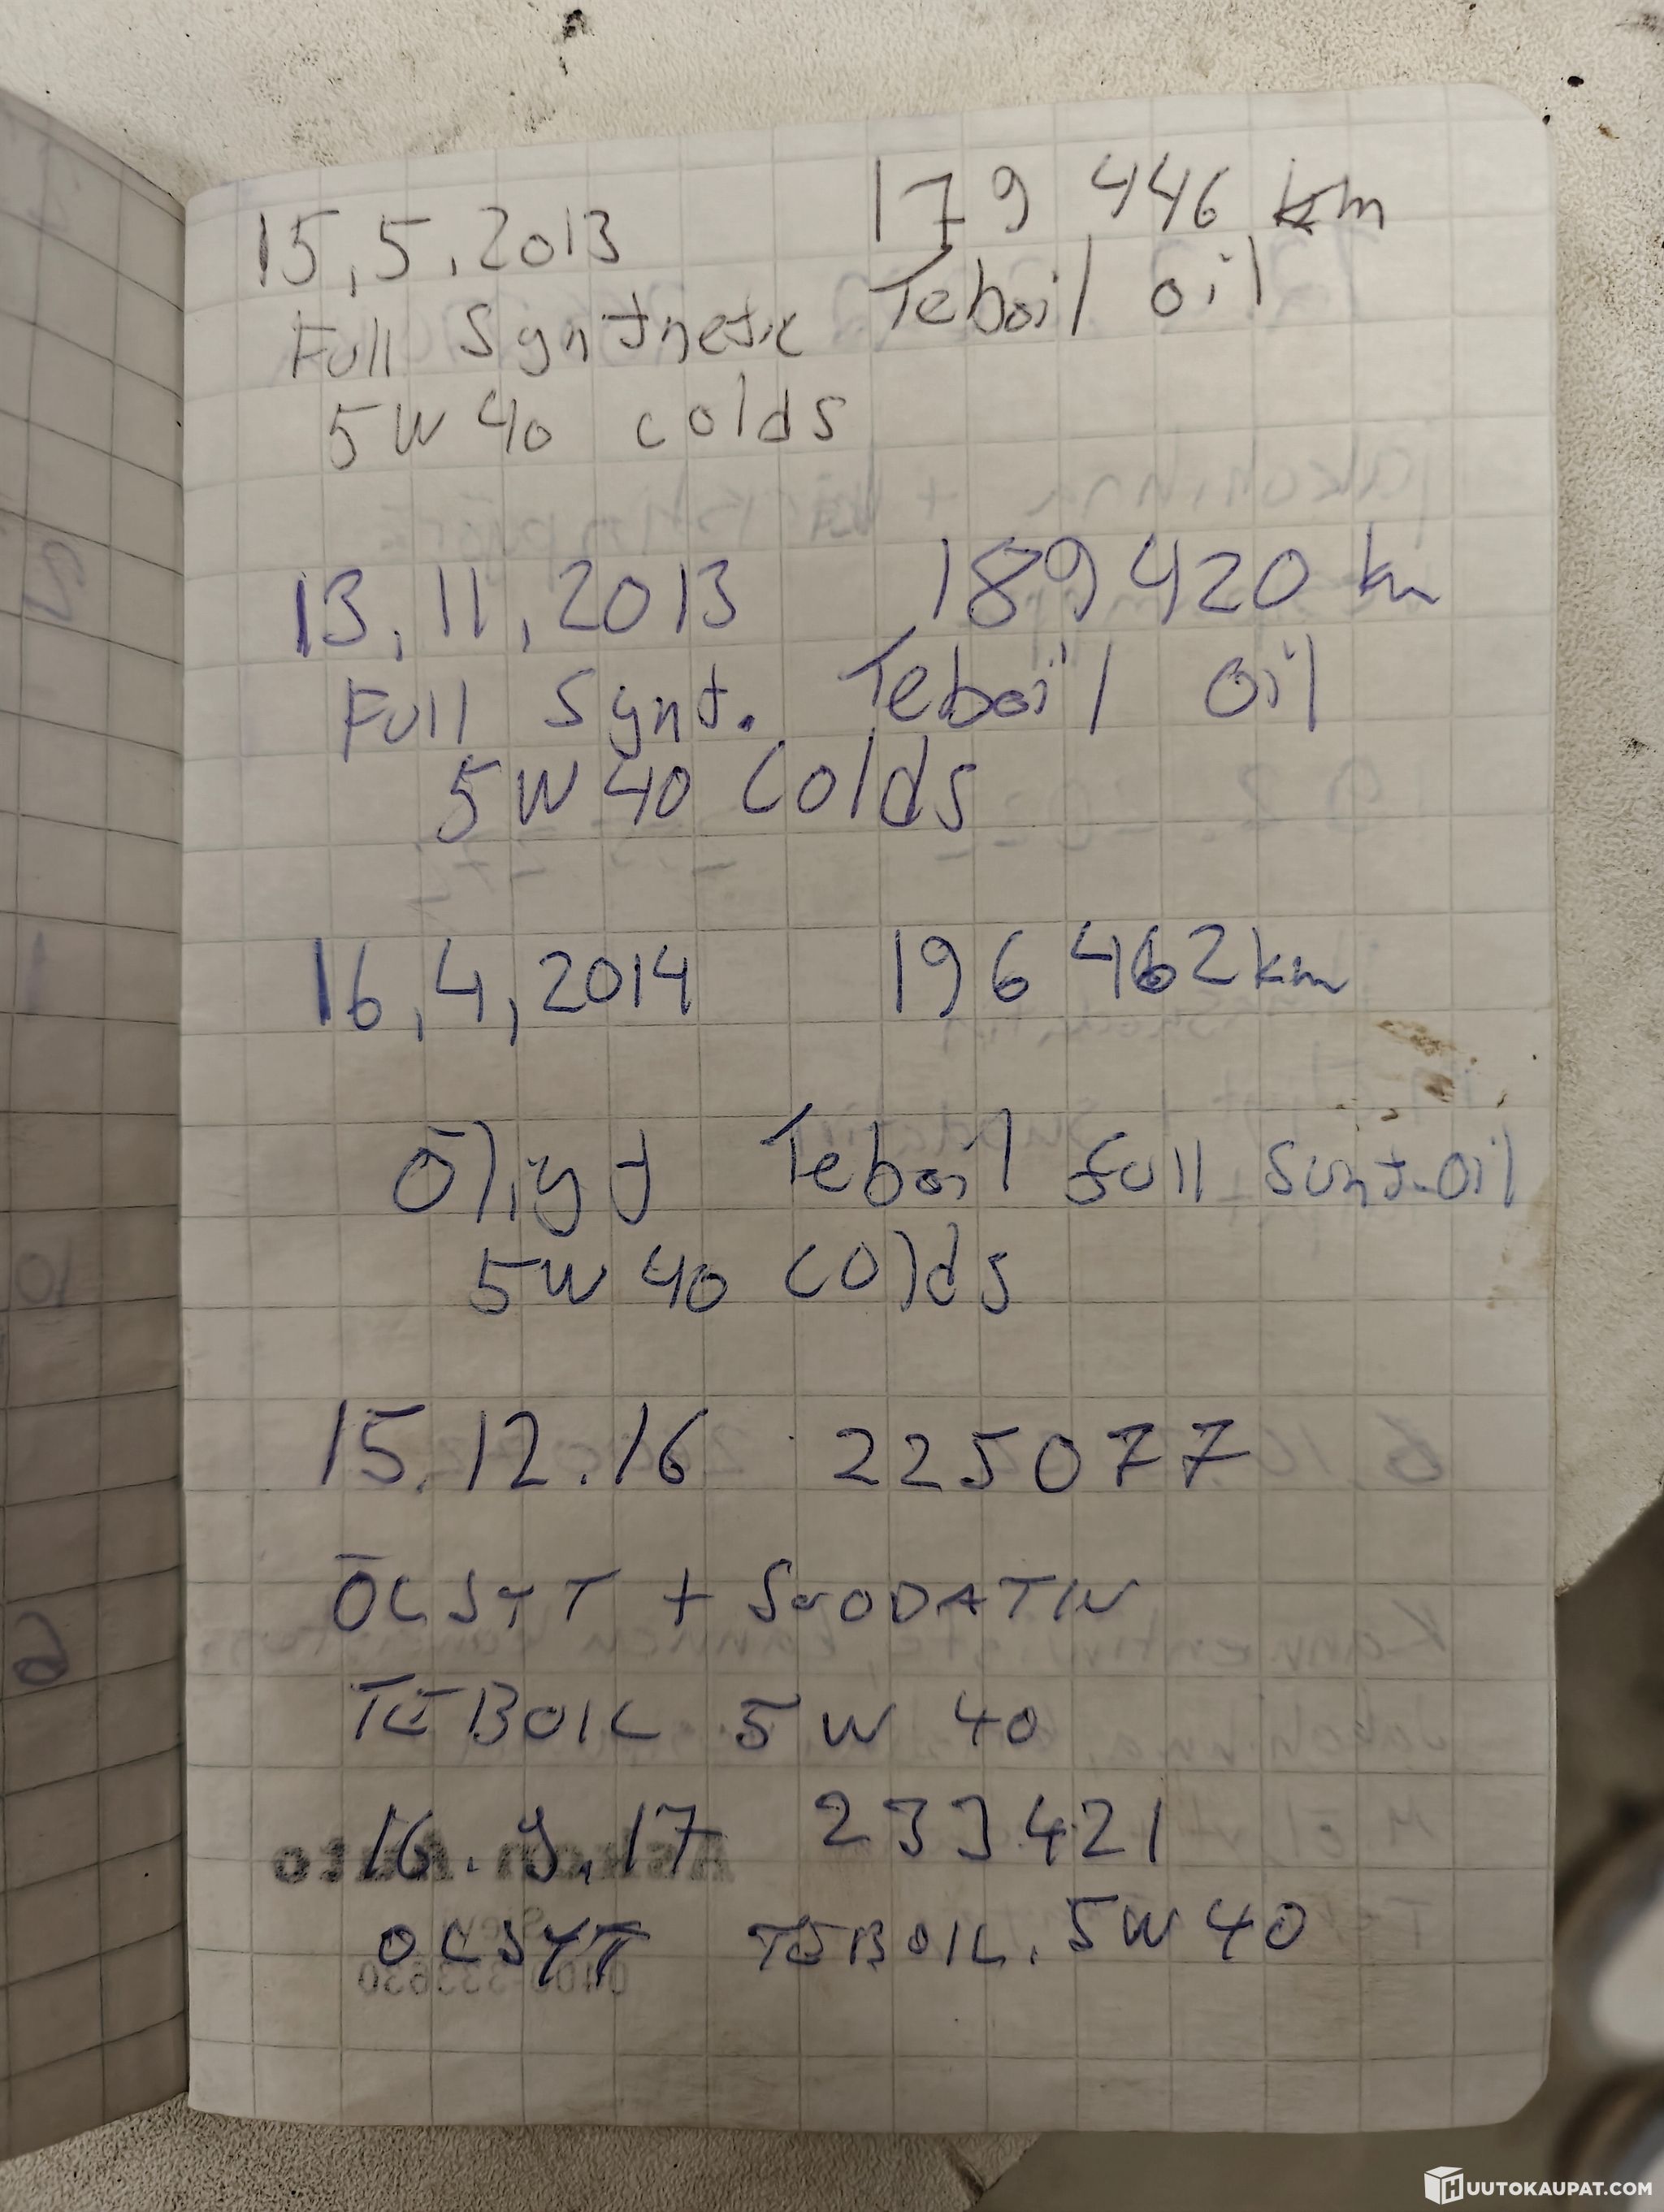 15.5.2013 179 446 km
Full Syntnetic Teboil oil
5W40 colds
13.11.2013 189 420 km
Full Synt. Teboil Oil
5W40 Colds
16.4.2014 196 462 km
Öljyt Teboil full Synt.Oil
5W40 colds
15.12.16 225077
ÖLJYT + SUODATIN
TEBOIL 5W 40
16.9.17 233421
OLJYT TEBOIL. 5W40
HUUTOKAUPAT.COM